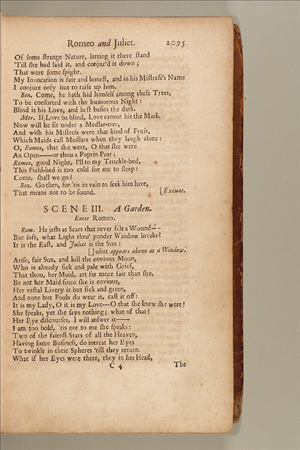 Romeo and Juliet. 2095
Of some strange Nature, letting it there stand
'Till she had laid it, and conjur'd it down;
That were some spight.
My Invocation is fair and honest, and in his Mistress's Name
I conjure only but to raise up him.
Ben. Come, he hath hid himself among these Trees,
To be consorted with the humorous Night:
Blind is his Love, and best befits the dark.
Mer. If Love be blind, Love cannot hit the Mark.
Now will he sit under a Medlar-tree,
And wish his Mistress were that kind of Fruit,
Which Maids call Medlars when they laugh alone:
O, Romeo, that she were, O that she were
An Open—— or thou a Poprin Pear;
Romeo, good Night, I'll to my Truckle-bed,
This Field-bed is too cold for me to sleep:
Come, shall we go?
Ben. Go then, for 'tis in vain to seek him here,
That means not to be found. [Exeunt.
SCENE III. A Garden.
Enter Romeo.
Rom. He jests at Scars that never felt a Wound--
But soft, what Light thro' yonder Window breaks?
It is the East, and Juliet is the Sun:
[Juliet appears above at a Window.
Arise, fair Sun, and kill the envious Moon,
Who is already sick and pale with Grief,
That thou, her Maid, art far more fair than she.
Be not her Maid since she is envious,
Her vestal Livery is but sick and green,
And none but Fools do wear it, cast it off:
It is my Lady, O it is my Love---O that she knew she were!
She speaks, yet she says nothing; what of that?
Her Eye discourses, I will answer it——
I am too bold, 'tis not to me she speaks:
Two of the fairest Stars of all the Heaven,
Having some Business, do intreat her Eyes
To twinkle in their Spheres 'till they return.
What if her Eyes were there, they in her Head,
C 4 The